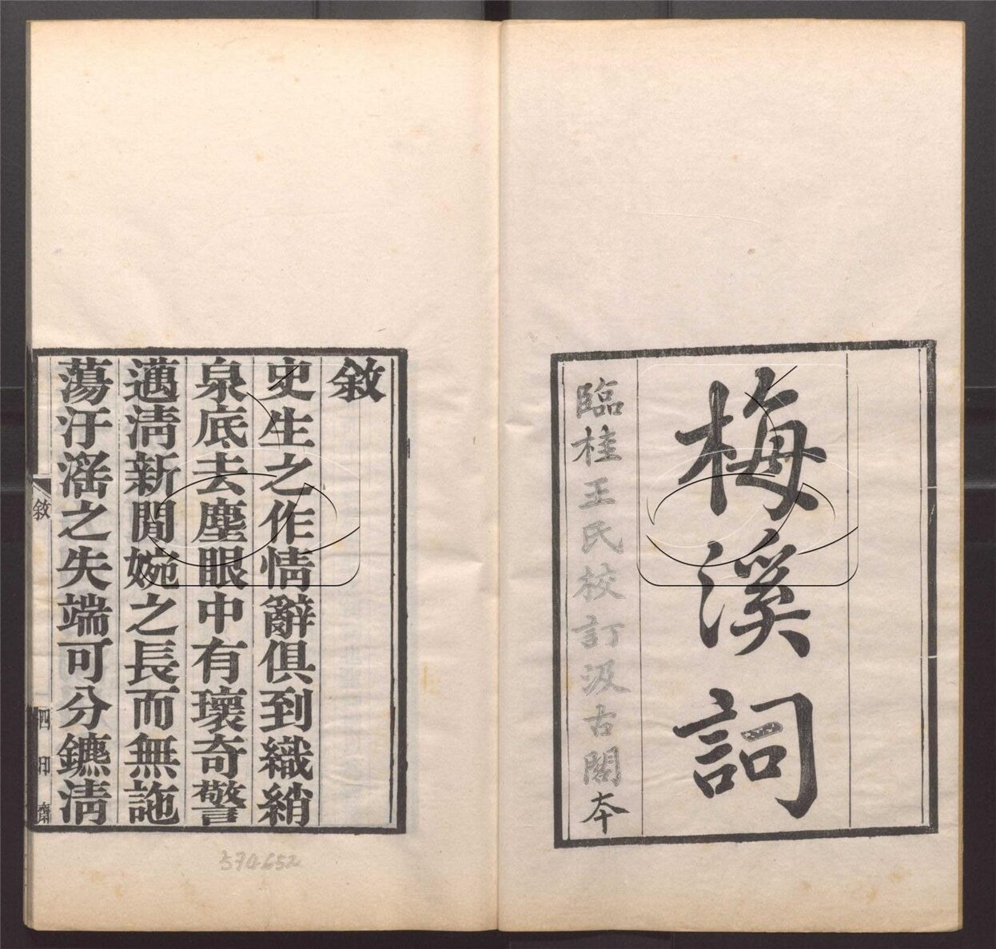 梅溪詞
臨桂王氏校訂汲古閣本
敘
史生之作情辭俱到織綃
泉底去塵眼中有瓌奇警
邁清新閒婉之長而無詭
蕩汙滛之失端可分鑣清
敘
四印齋
574652